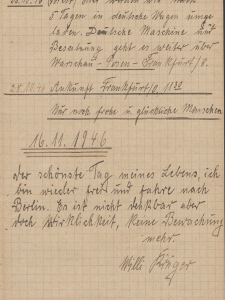 5 Tagen in deutsche Wagen umge
laden. Deutsche Maschine und
Besatzung geht es weiter über
Warschau - Posen - Frankfurt/O.
Ankunft Frankfurt/O.
Nur noch frohe u glückliche Menschen
16.11.1946
Der schönste Tag meines Lebens, ich
bin wieder frei und fahre nach
Berlin. Es ist nicht denkbar aber
doch Wirklichkeit, keine Bewachung
mehr.
Willi Krüger